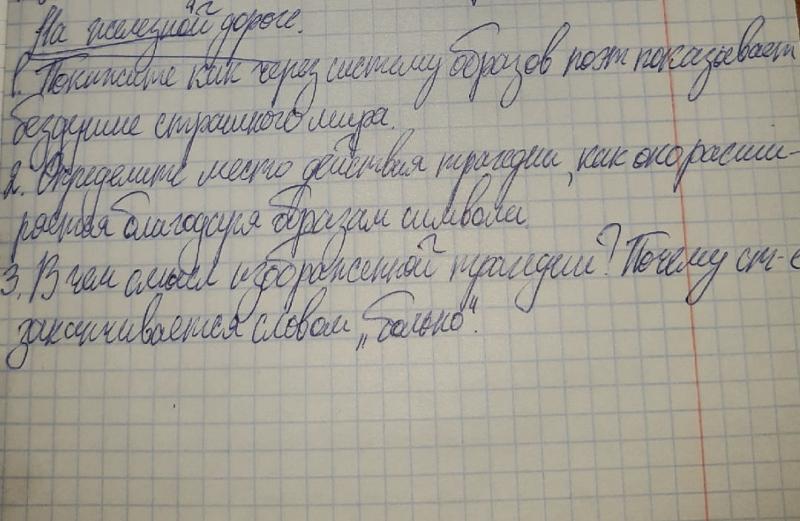 На железной дороге.
1. Покажите как через систему образов поэт показывает
бездушие страшного мира.
2. Определите место действия трагедии, как оно расши-
ряется благодаря образам символа.
3. В чем смысл изображенной трагедии? Почему ст-е
заканчивается словом „больно".